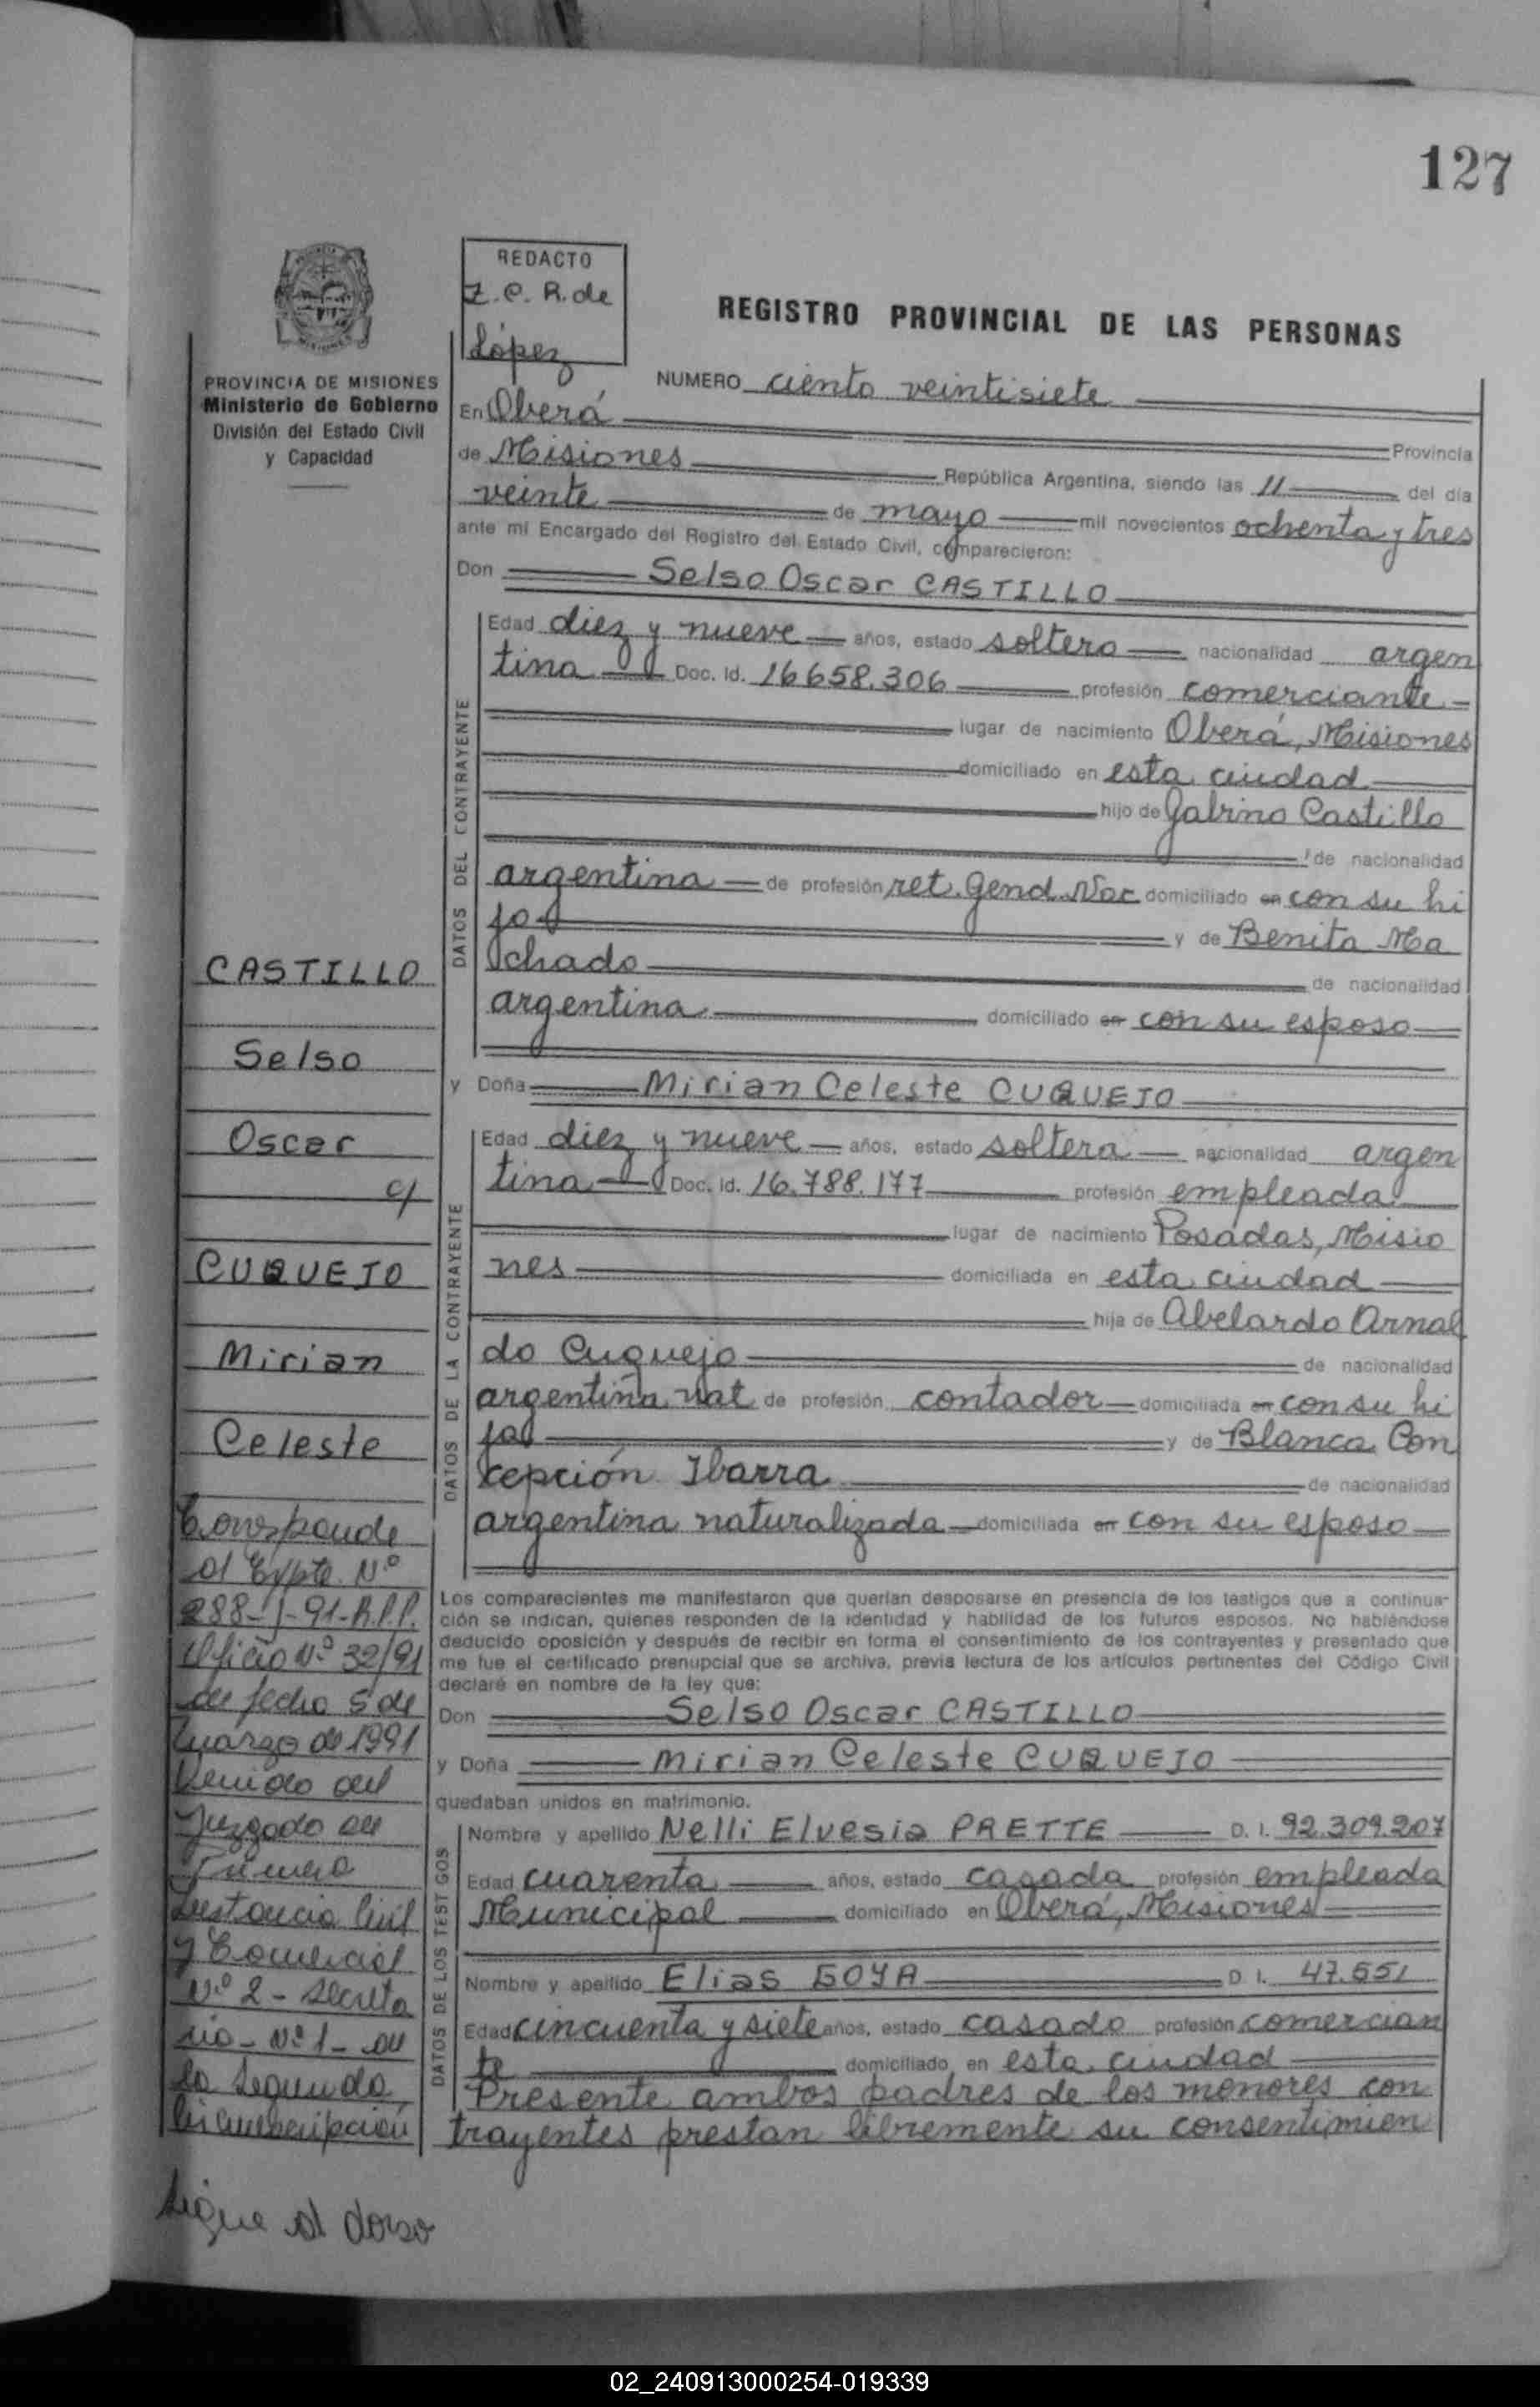 127
REDACTO
Z. C. R. de
López
REGISTRO PROVINCIAL DE LAS PERSONAS
PROVINCIA DE MISIONES
Ministerio de Gobierno
División del Estado Civil
y Capacidad
NUMERO ciento veintisiete
En Oberá Provincia
de Misiones República Argentina, siendo las 11 del día
veinte de mayo mil novecientos ochenta y tres
ante mí Encargado del Registro del Estado Civil, comparecieron:
Don Selso Oscar CASTILLO
DATOS DEL CONTRAYENTE
Edad diez y nueve años, estado soltero nacionalidad argen
tina Doc. Id. 16658.306 profesión comerciante
lugar de nacimiento Oberá, Misiones
domiciliado en esta ciudad
hijo de Gabino Castillo
de nacionalidad
argentina de profesión ret. Gend. Nac domiciliado en con su hi
jo y de Benita Ma
chado de nacionalidad
argentina domiciliado en con su esposo
y Doña Mirian Celeste CUQUEJO
DATOS DE LA CONTRAYENTE
Edad diez y nueve años, estado soltera nacionalidad argen
tina Doc. Id. 16.788.177 profesión empleada
lugar de nacimiento Posadas, Misio
nes domiciliada en esta ciudad
hija de Abelardo Arnal
do Cuquejo de nacionalidad
argentina nat de profesión contador domiciliada en con su hi
ja y de Blanca Con
cepción Ibarra de nacionalidad
argentina naturalizada domiciliada en con su esposo
Los comparecientes me manifestaron que querían desposarse en presencia de los testigos que a continua-
ción se indican, quienes responden de la identidad y habilidad de los futuros esposos. No habiéndose
deducido oposición y después de recibir en forma el consentimiento de los contrayentes y presentado que
me fue el certificado prenupcial que se archiva, previa lectura de los artículos pertinentes del Código Civil
declaré en nombre de la ley que:
Don Selso Oscar CASTILLO
y Doña Mirian Celeste CUQUEJO
quedaban unidos en matrimonio.
DATOS DE LOS TESTIGOS
Nombre y apellido Nelli Elvesia PRETTE D. I. 92.309.207
Edad cuarenta años, estado casada profesión empleada
Municipal domiciliado en Oberá, Misiones
Nombre y apellido Elias GOYA D. I. 47.551
Edad cincuenta y siete años, estado casado profesión comercian
te domiciliado en esta ciudad
Presente ambos padres de los menores con
trayentes prestan libremente su consentimien
CASTILLO
Selso
Oscar
c/
CUQUEJO
Mirian
Celeste
Corresponde
al Expte. Nº
288-J-91-R.P.P.
Oficio Nº 32/91
de fecha 5 de
marzo de 1991
Venido del
Juzgado de
Primera
Instancia Civil
y Comercial
Nº 2 - Secreta
ria - Nº 1 - de
la Segunda
Circunscripción
Sigue al dorso
02_240913000254-019339